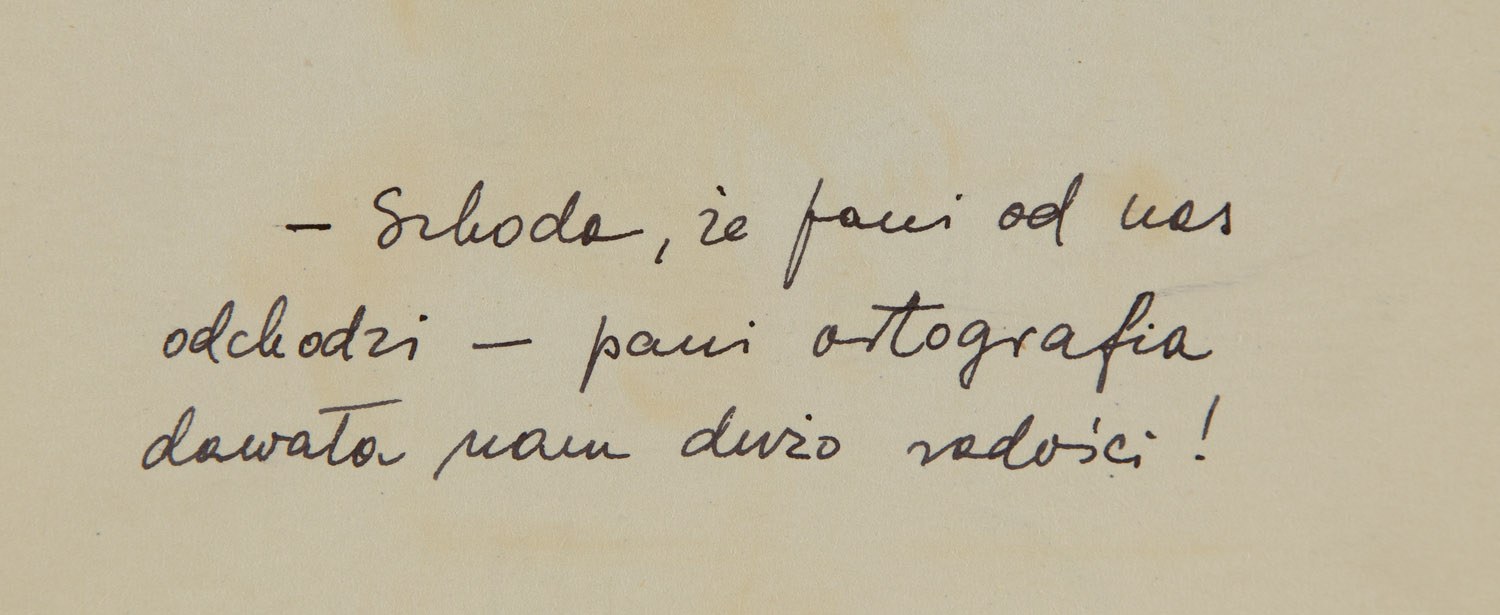 – Szkoda, że pani od nas
odchodzi – pani ortografia
dawała nam dużo radości!